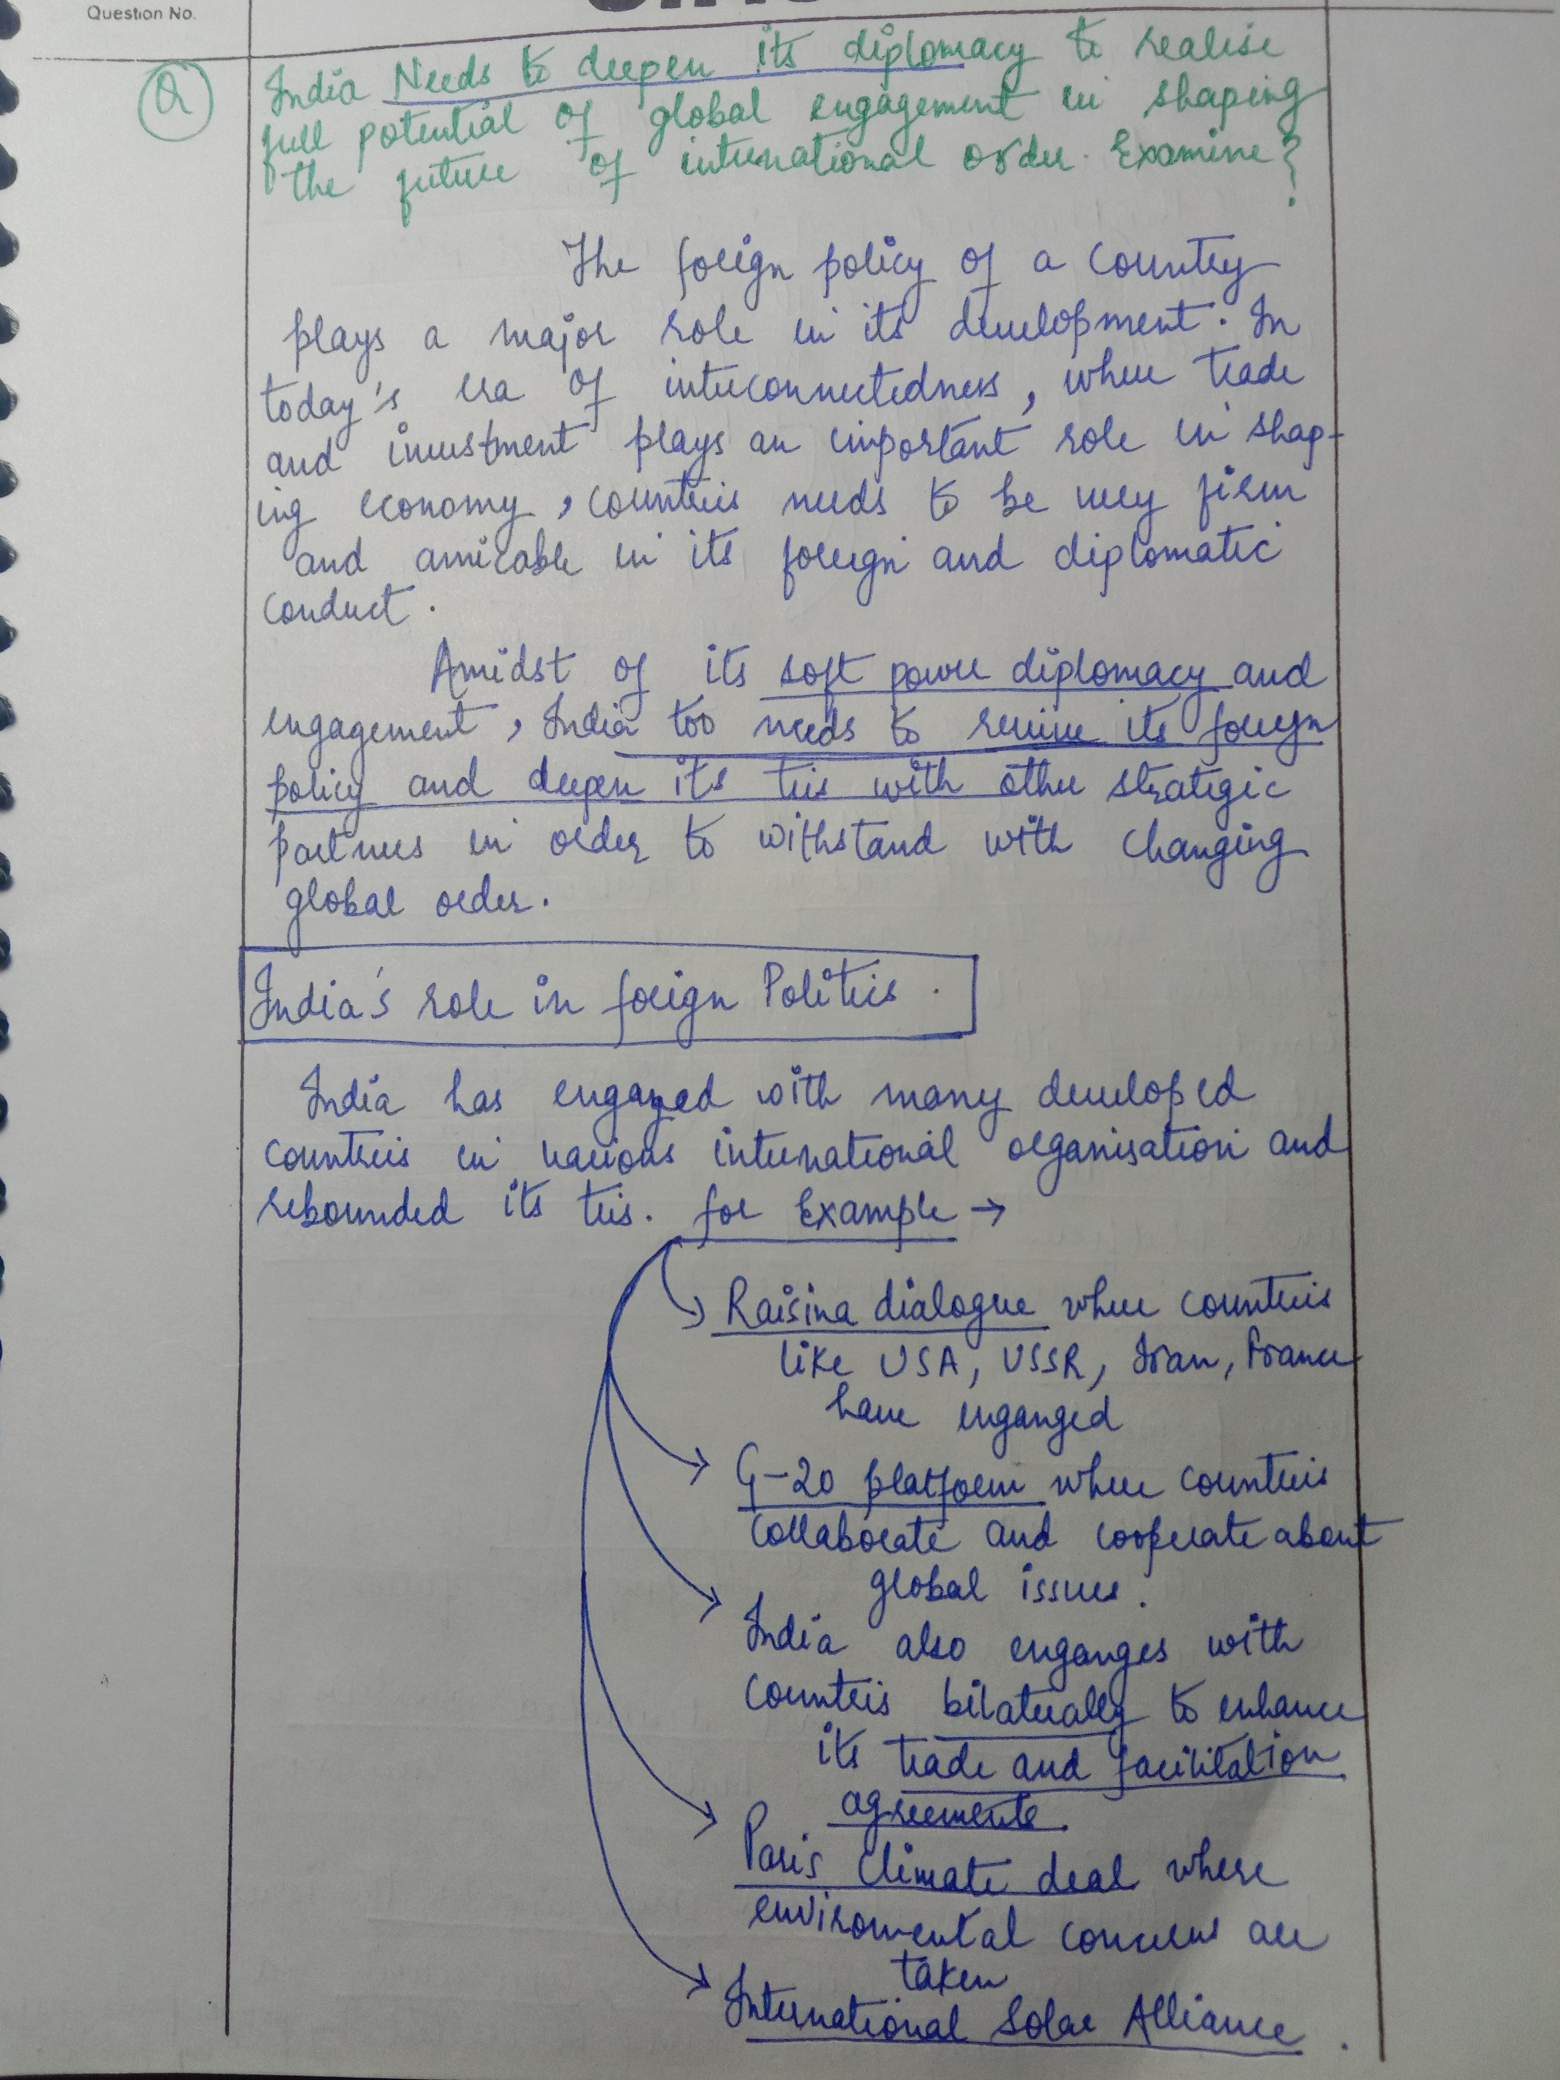 Question No.
Q
India Needs to deepen its diplomacy to realise
full potential of global engagement in shaping
the future of international order. Examine?
The foreign policy of a country
plays a major role in its development. In
today's era of interconnectedness, where trade
and investment plays an important role in shap-
ing economy, countries needs to be very firm
and amicable in its foreign and diplomatic
conduct.
Amidst of its soft power diplomacy and
engagement, India too needs to revive its foreign
policy and deepen its ties with other strategic
partners in order to withstand with changing
global order.
India's role in foreign Politics.
India has engazed with many developed
countries in various international organisation and
rebounded its ties. for Example →
Raisina dialogue where countries
like USA, USSR, Iran, France
have enganged
G-20 platform where countries
collaborate and cooperate about
global issues.
India also enganges with
countries bilaterally to enhance
its trade and facilitation
agreements.
Paris Climate deal where
enviromental concerns are
taken
International Solar Alliance.